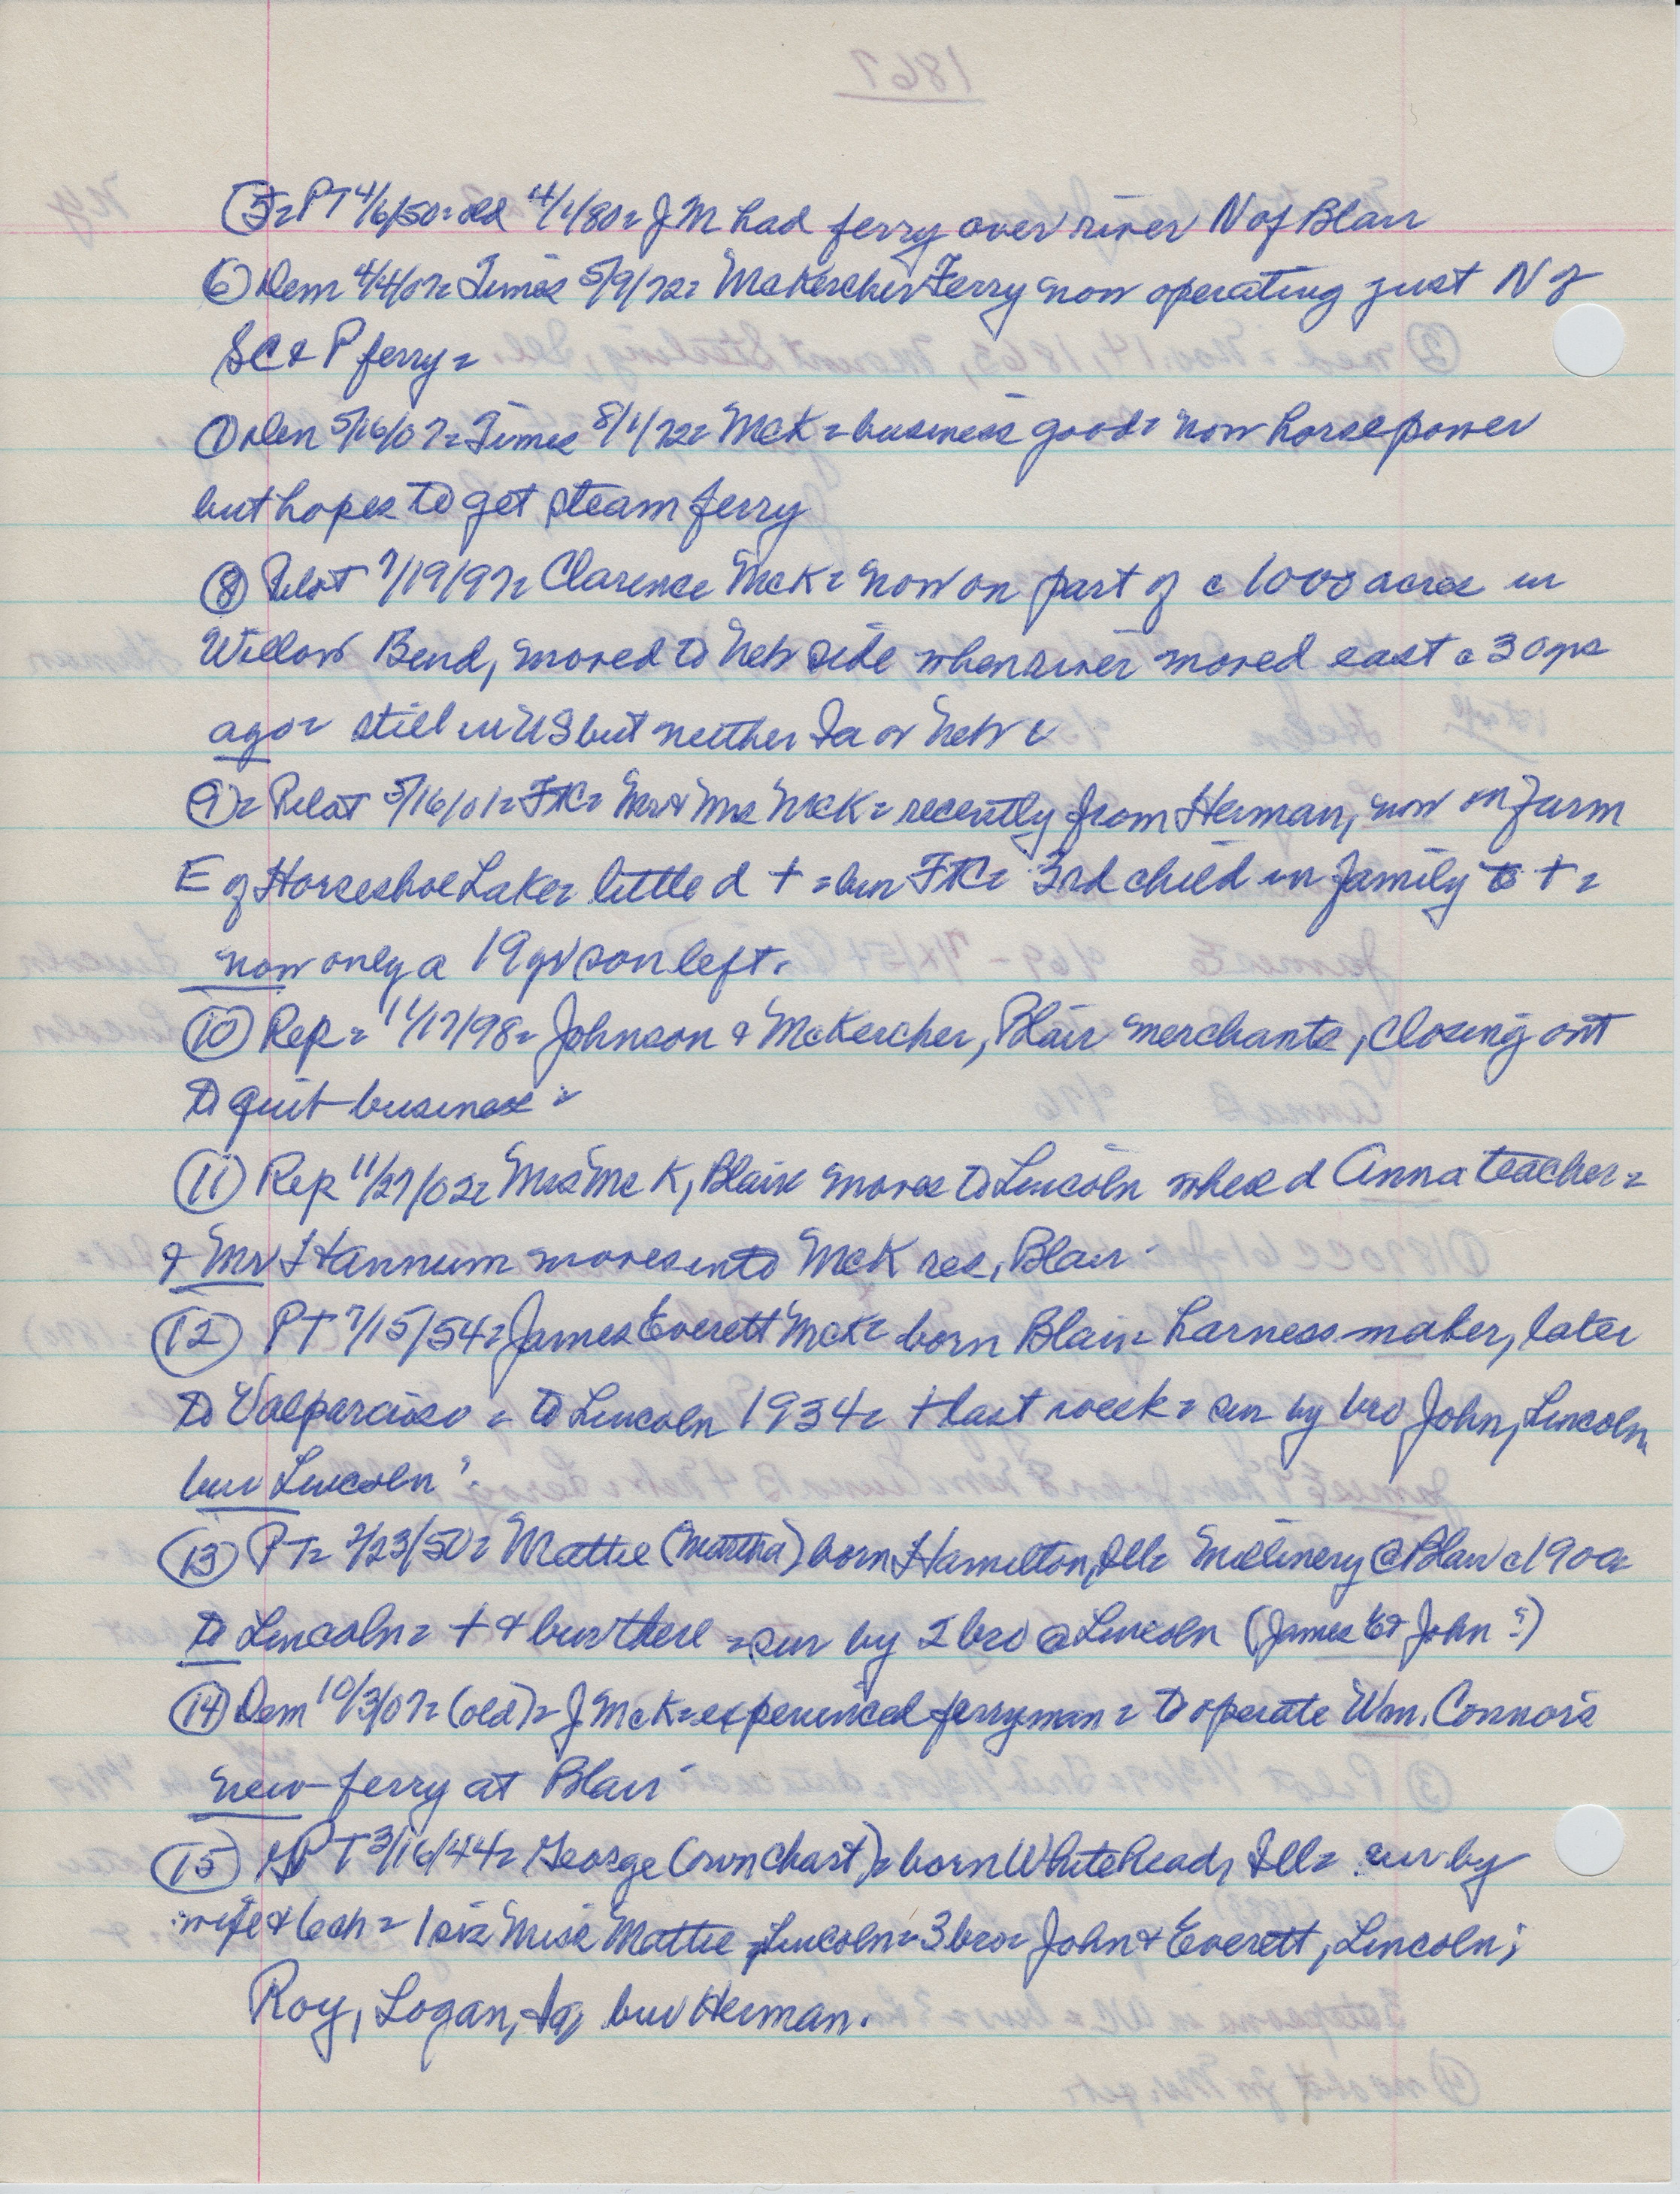 ⑤= PT 4/6/50= old 4/1/80= J M had ferry over river N of Blair
⑥ Dem 4/4/07= Times 5/9/72= McKercher Ferry now operating just N of
SC & P ferry=
⑦ Dem 5/16/07= Times 8/1/72= McK= business good= now horsepower
but hopes to get steam ferry
⑧ Pilot 7/19/97= Clarence McK= now on part of c 1000 acres in
Willow Bend, moved to Neb side when river moved east c 30 yrs
ago= still in US but neither Ia or Nebr
⑨= Pilot 5/16/01= FTC= Mr & Mrs McK= recently from Herman, now on farm
E of Horseshoe Lake= little d + = bur FTC= 3rd child in family to + =
now only a 19 yr son left.
⑩ Rep= 11/17/98= Johnson & McKercher, Blair merchants, closing out
to quit business=
⑪ Rep 11/27/02= Mrs McK, Blair moves to Lincoln where d Anna teacher=
& Mr Hannum moves into McK res, Blair
⑫ PT 7/15/54= James Everett McK= born Blair= harness maker, later
to Valparaiso = to Lincoln 1934= + last week= sur by bro John, Lincoln
bur Lincoln
⑬ PT= 2/23/50= Mattie (Martha) born Hamilton, Ill= millinery @ Blair c 1900=
to Lincoln= + & bur there = sur by 2 bro @ Lincoln (James E & John ?)
⑭ Dem 10/3/07= (old)= J McK= experienced ferryman = to operate Wm. Connor's
new ferry at Blair
⑮ PT 3/16/44= George (own chart)= born Whitehead, Ill= sur by
wife & 6 ch = 1 sis Miss Mattie, Lincoln= 3 bro= John & Everett, Lincoln;
Roy, Logan, Ia, bur Herman.